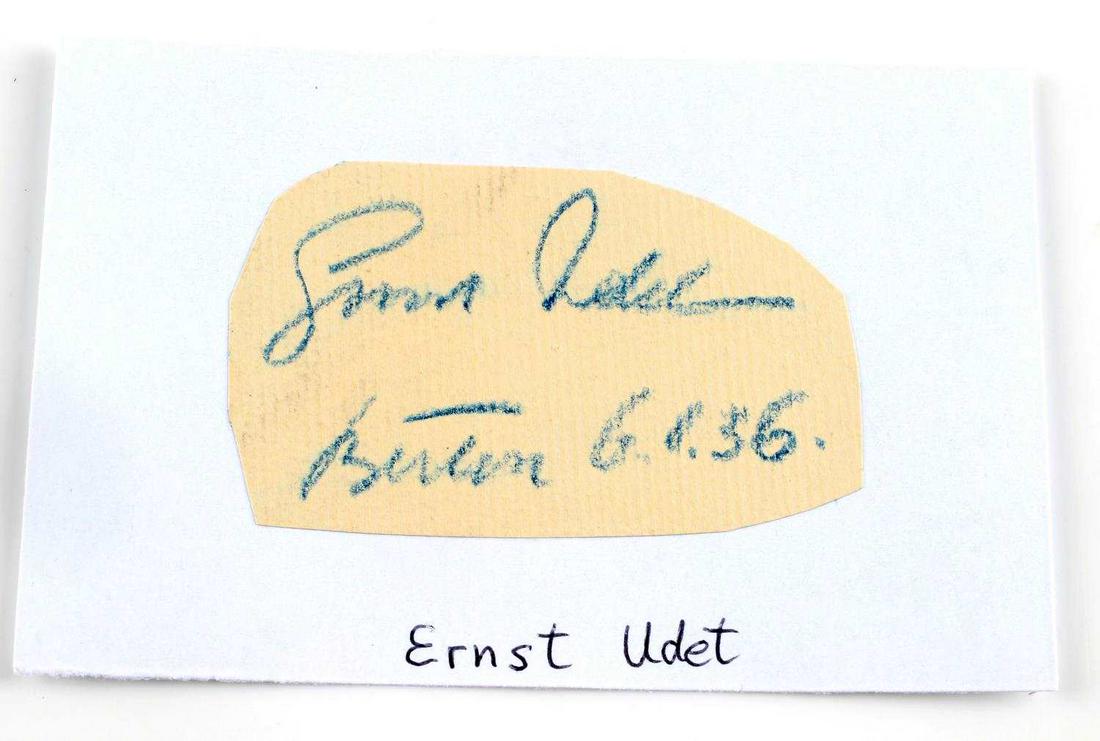 Ernst Udet
Berlin 6.1.36.
Ernst Udet